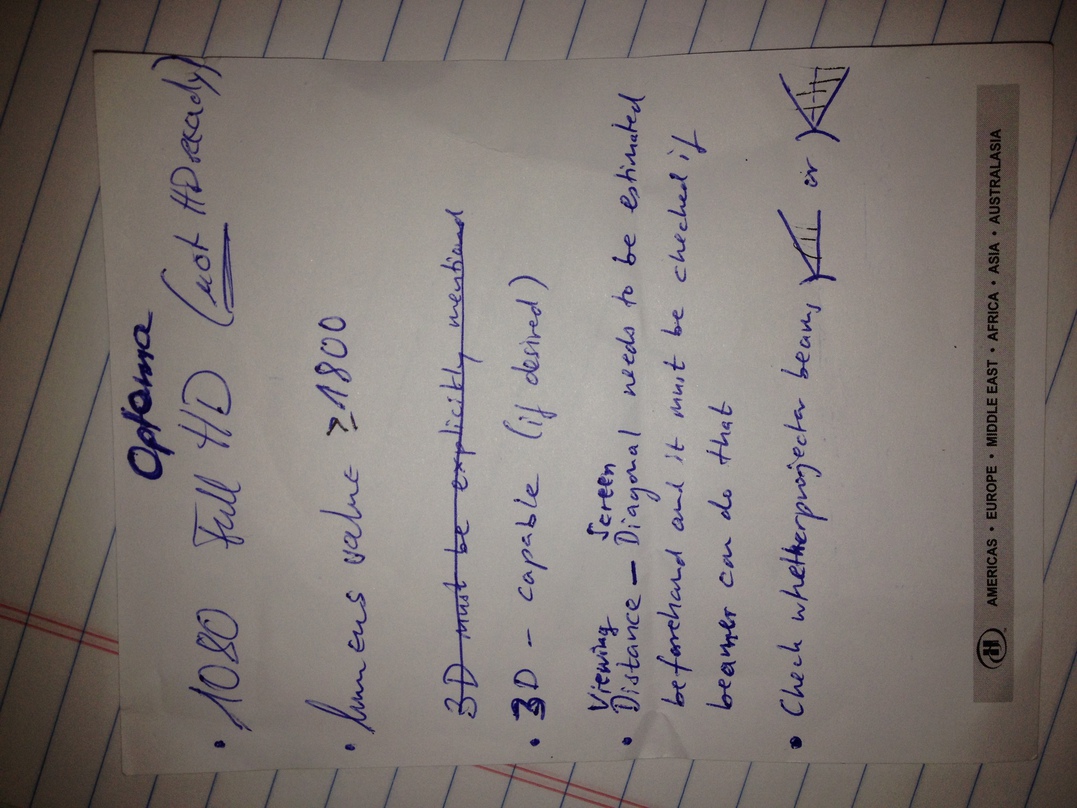 Optoma
• 1080 Full HD (not HD ready)
• lumens value ≥1800
3D must be explicitly mentioned
• 3D - capable (if desired)
Viewing Screen
• Distance – Diagonal needs to be estimated
beforehand and it must be checked if
beamer can do that
• Check whether projector beams or
AMERICAS • EUROPE • MIDDLE EAST • AFRICA • ASIA • AUSTRALASIA